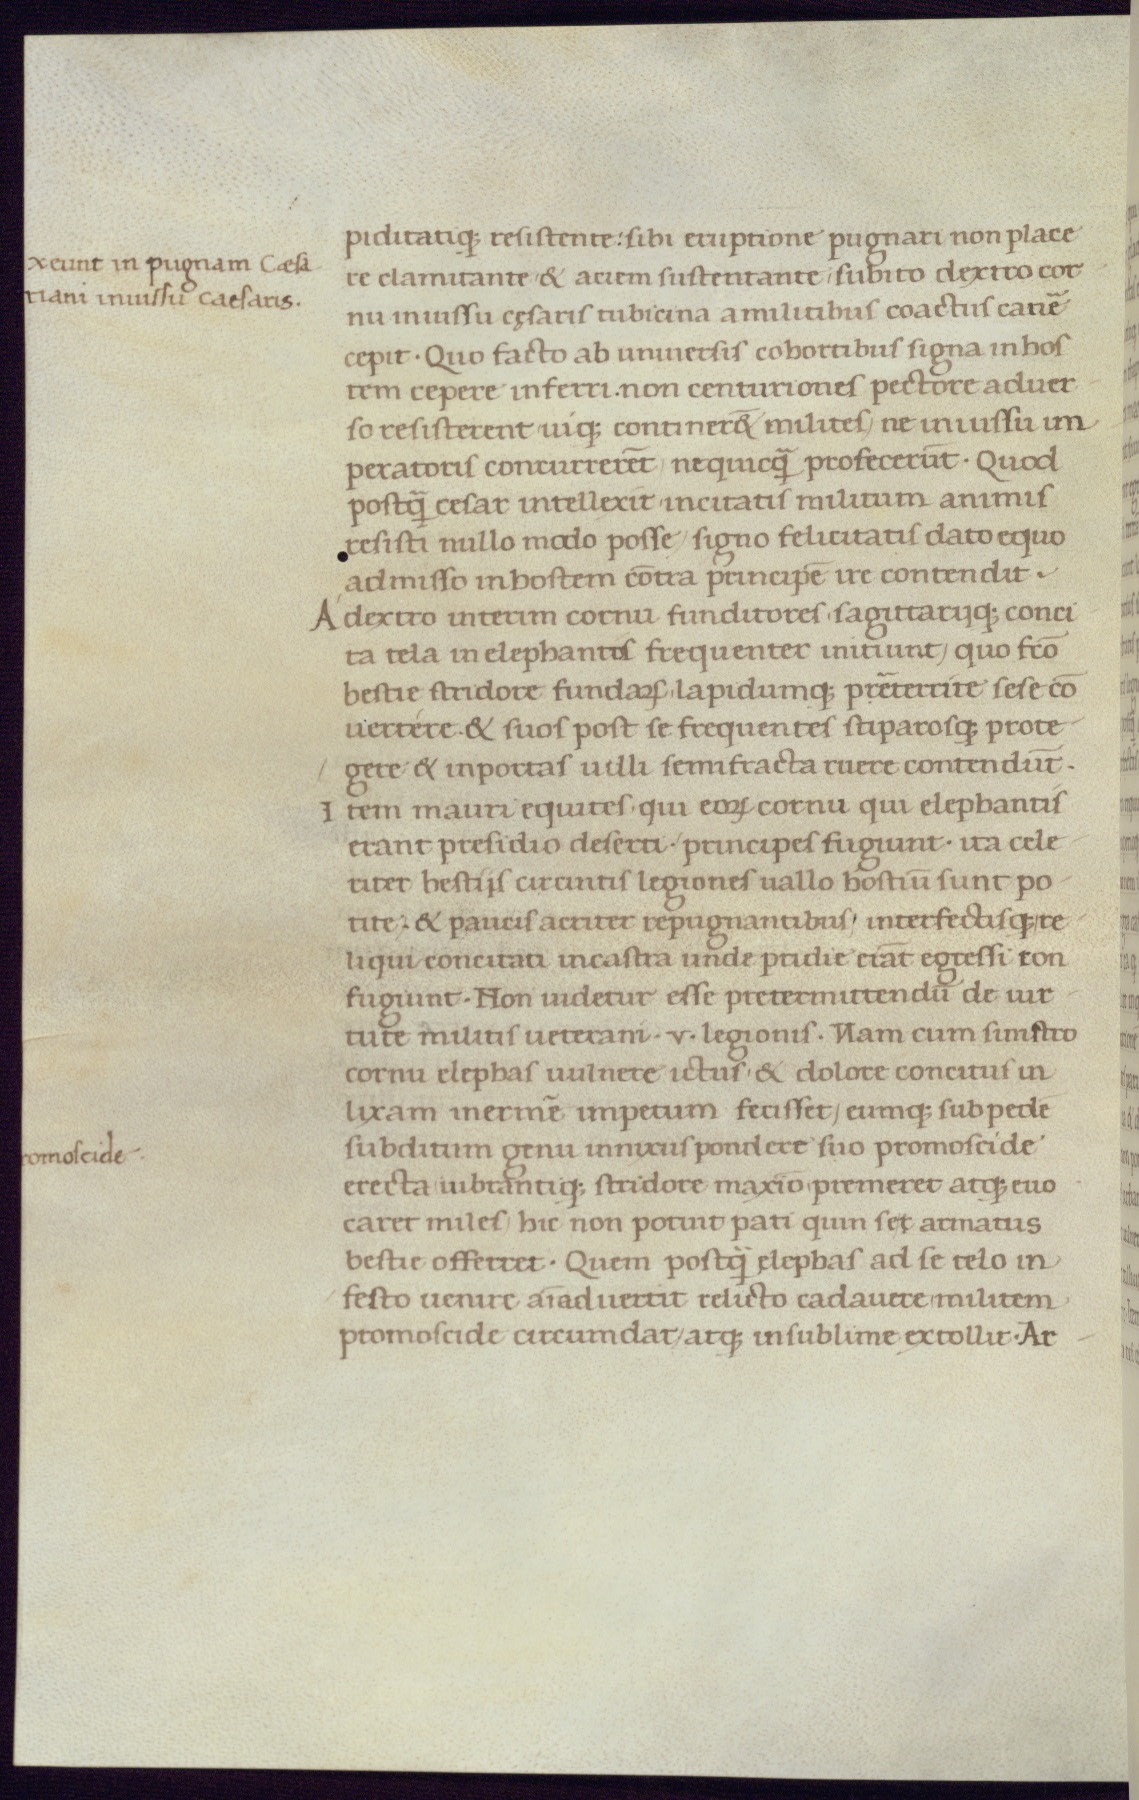 xeunt in pugnam Cæsa
riani iniussu Caesaris.
piditatiq; resistente: sibi eruptione pugnari non place
re clamitante & aciem sustentante subito dextro cor
nu iniussu cęsaris tubicina a militibus coactus canẽ
cepit. Quo facto ab uniuersis cohortibus signa in hos
tem cepere inferri. non centuriones pectore aduer
so resisterent uiq; continer&̃ milites/ ne iniussu im
peratoris concurrerẽt/ nequicq̃ profecerũt. Quod
postq̃ cesar intellexit incitatis militum animis
resisti nullo modo posse/ signo felicitatis dato equo
admisso in hostem cõtra principẽ ire contendit.
A dextro interim cornu funditores sagittarijq; conci
ta tela in elephantos frequenter iniciunt/ quo fcõ
bestie stridore fundaꝝ lapidumq; prẽterrite sese cõ
uertere. & suos post se frequentes stiparosq; prote
gere & in portas uilli semifracta ruere contendũt.
Item mauri equites qui eoꝝ cornu qui elephantis
erant presidio deserti. principes fugiunt. ita cele
riter bestijs circintis legiones uallo hostiũ sunt po
tite. & paucis acriter repugnantibus/ interfectisq; re
liqui concitati in castra unde pridie erãt egressi con
fugiunt. Non uidetur esse pretermittendũ de uir
tute militis ueterani. v. legionis. Nam cum sinistro
cornu elephas uulnere ictus & dolore concitus in
lixam inermẽ impetum fecisset/ eumq; sub pedẽ
subditum genu innixus pondere suo promoscide
erecta uibrantiq; stridore maxiõ premeret atq; euo
caret miles/ hic non potuit pati quin seę armatus
bestie offerret. Quem postq̃ elephas ad se telo in
festo uenire aĩaduertit relicto cadauere militem
promoscide circumdat/ atq; in sublime extollit. Ar
romoscide.